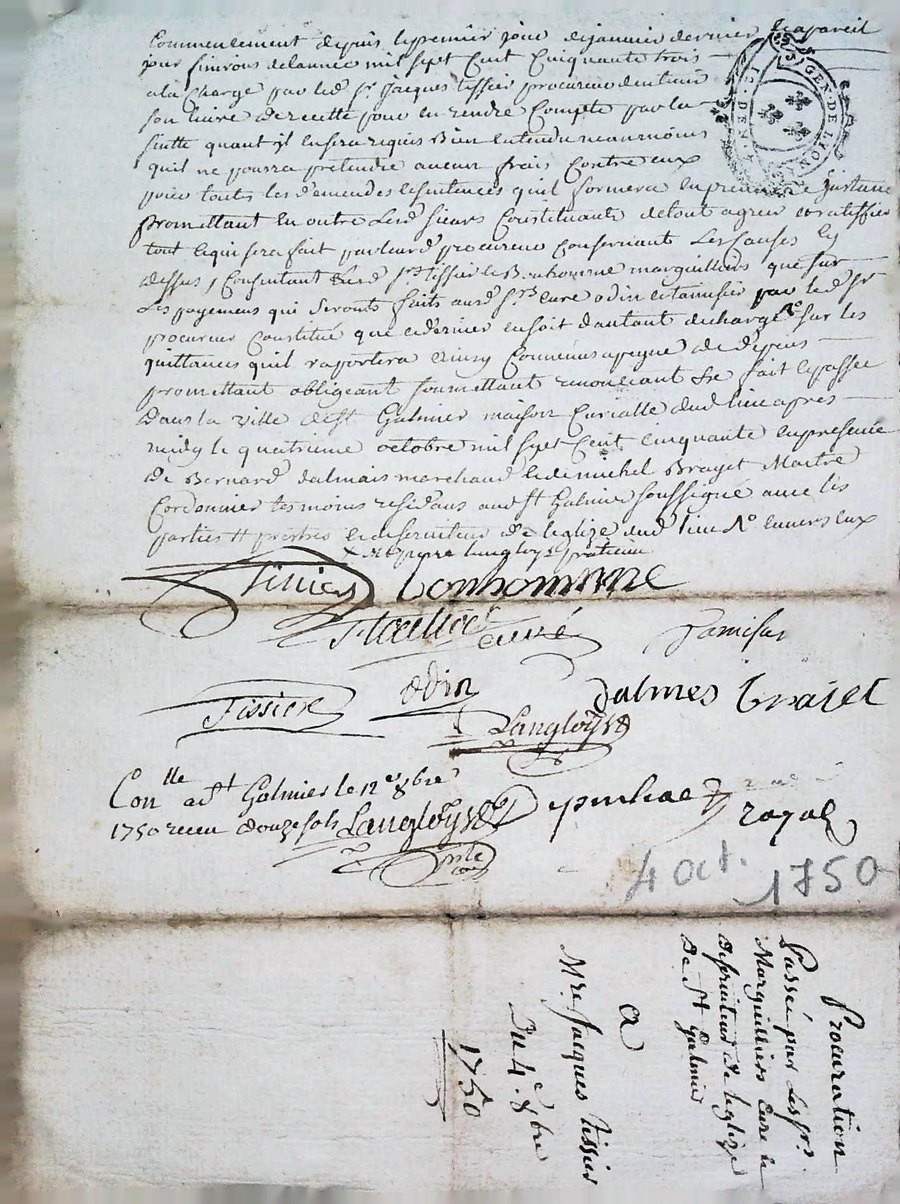 Commencement depuis le premier jour de janvier dernier & a pareil
jour finirons de lannée mil sept Cent Cinquante trois
a la Charge par led. Sr. jacques tissier procureur de tenir
son livre de recette pour en rendre Compte par la
suitte quant il en sera requis Bien entendu neanmoins
quil ne pourra pretendre aucun frais Contre eux
pour touts les demendes et sentences quil formera en premiere justance
promettant En outre Lesd. sieurs Constituants de tout agreer et ratiffier
tout ce qui sera fait par leurd. procureur Conservant Les Causes Cy
dessus, Consentant Lesd. Srs. tissier et Bonhomme marguilliers que sur
Les payemens qui seronts faits auxd. Srs. Curé odin et tamisier par led. Sr
procureur Constitué que ce dernier en soit d'autant decharge sur les
quittances quil raportera Ainsy Convenus a peyne de depens
promettant obligeant soumettant renonceant &c fait et passé
Dans la ville de St. Galmier maison Curialle dud. lieu apres
midy le quatrieme octobre mil sept Cent cinquante en presence
de Bernard dalmais marchand et de michel Brayet Maitre
Cordonnier temoins residans aud. St Galmier soussigné avec les
parties pretres et desserviteur de leglize dud. lieu envers eux
Tissier bonhomme
curé tamisier
Tissier odin dalmes brajet
Langloys
Con.lle a St Galmier le 12e 8bre
1750 receu douze sols Langloys
royal
4 oct. 1750
GEN. DE LYON
Procuration
Passée par Les Srs.
Marguilliers Curé &
Deserviteur de leglize
De St Galmier
a
Mre. Jacques tissier
Du 4e. 8bre
1750